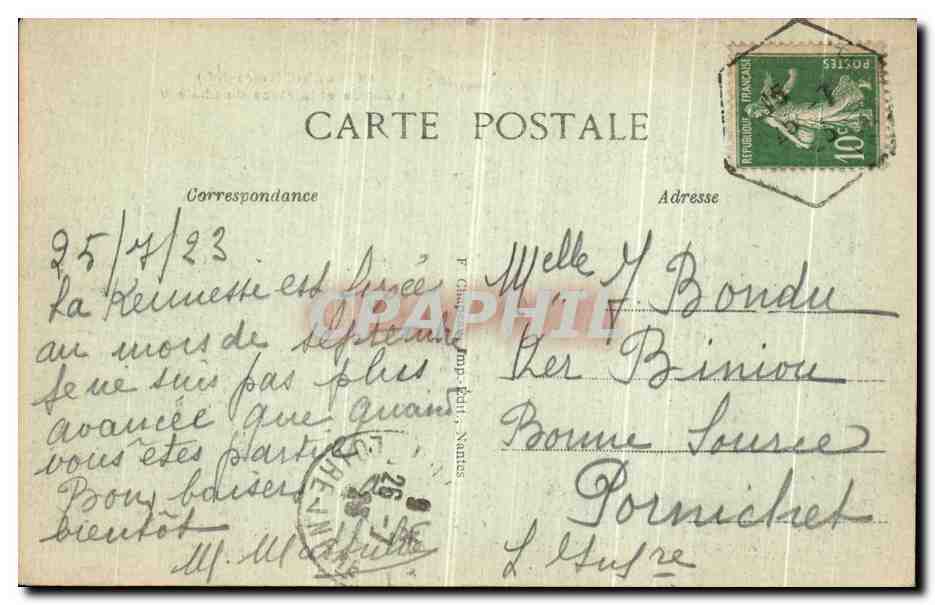 CARTE POSTALE
Correspondance
Adresse
RÉPUBLIQUE FRANÇAISE
POSTES
10c
25/7/23
La Kermesse est fixée
au mois de septembre
Je ne suis pas plus
avancée que quand
vous êtes partie
Bons baisers
bientôt
M. Mathilde
Melle J. Bondu
Ker Biniou
Bonne Source
Pornichet
L. Infre
F. Imp.-Edit., Nantes
LOIRE-INF
26-7
23
CPAPHIL